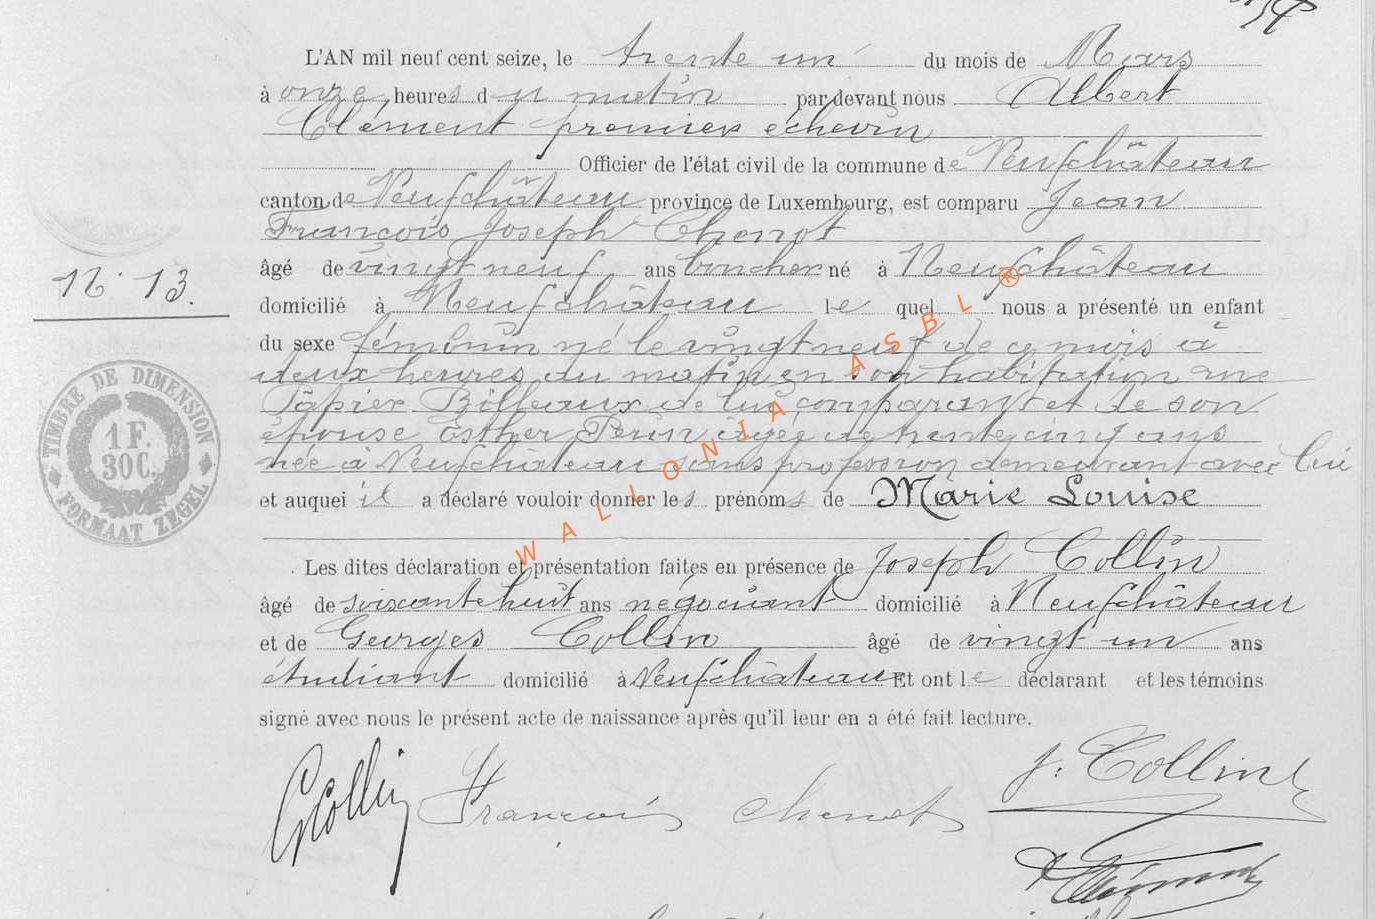 L'AN mil neuf cent seize, le trente un du mois de Mars
à onze heures du matin par devant nous Albert
Clément premier échevin
Officier de l'état civil de la commune de Neufchâteau
canton de Neufchâteau province de Luxembourg, est comparu Jean
François Joseph Chenot
âgé de vingt neuf ans boucher né à Neufchâteau
N° 13.
domicilié à Neufchâteau lequel nous a présenté un enfant
du sexe féminin né le vingt neuf de ce mois à
deux heures du matin en son habitation rue
Papier Billeaux de lui comparant et de son
épouse Esther Perin âgée de trente cinq ans
née à Neufchâteau sans profession demeurant avec lui
et auquel il a déclaré vouloir donner les prénoms de Marie Louise
TIMBRE DE DIMENSION
1 F.
30 C.
FORMAAT ZEGEL
WALLONIA ASBL ®
Les dites déclaration et présentation faites en présence de Joseph Collin
âgé de soixante huit ans négociant domicilié à Neufchâteau
et de Georges Collin âgé de vingt un ans
étudiant domicilié à Neufchâteau Et ont le déclarant et les témoins
signé avec nous le présent acte de naissance après qu'il leur en a été fait lecture.
GCollin François Chenot J. Collin
A Clément